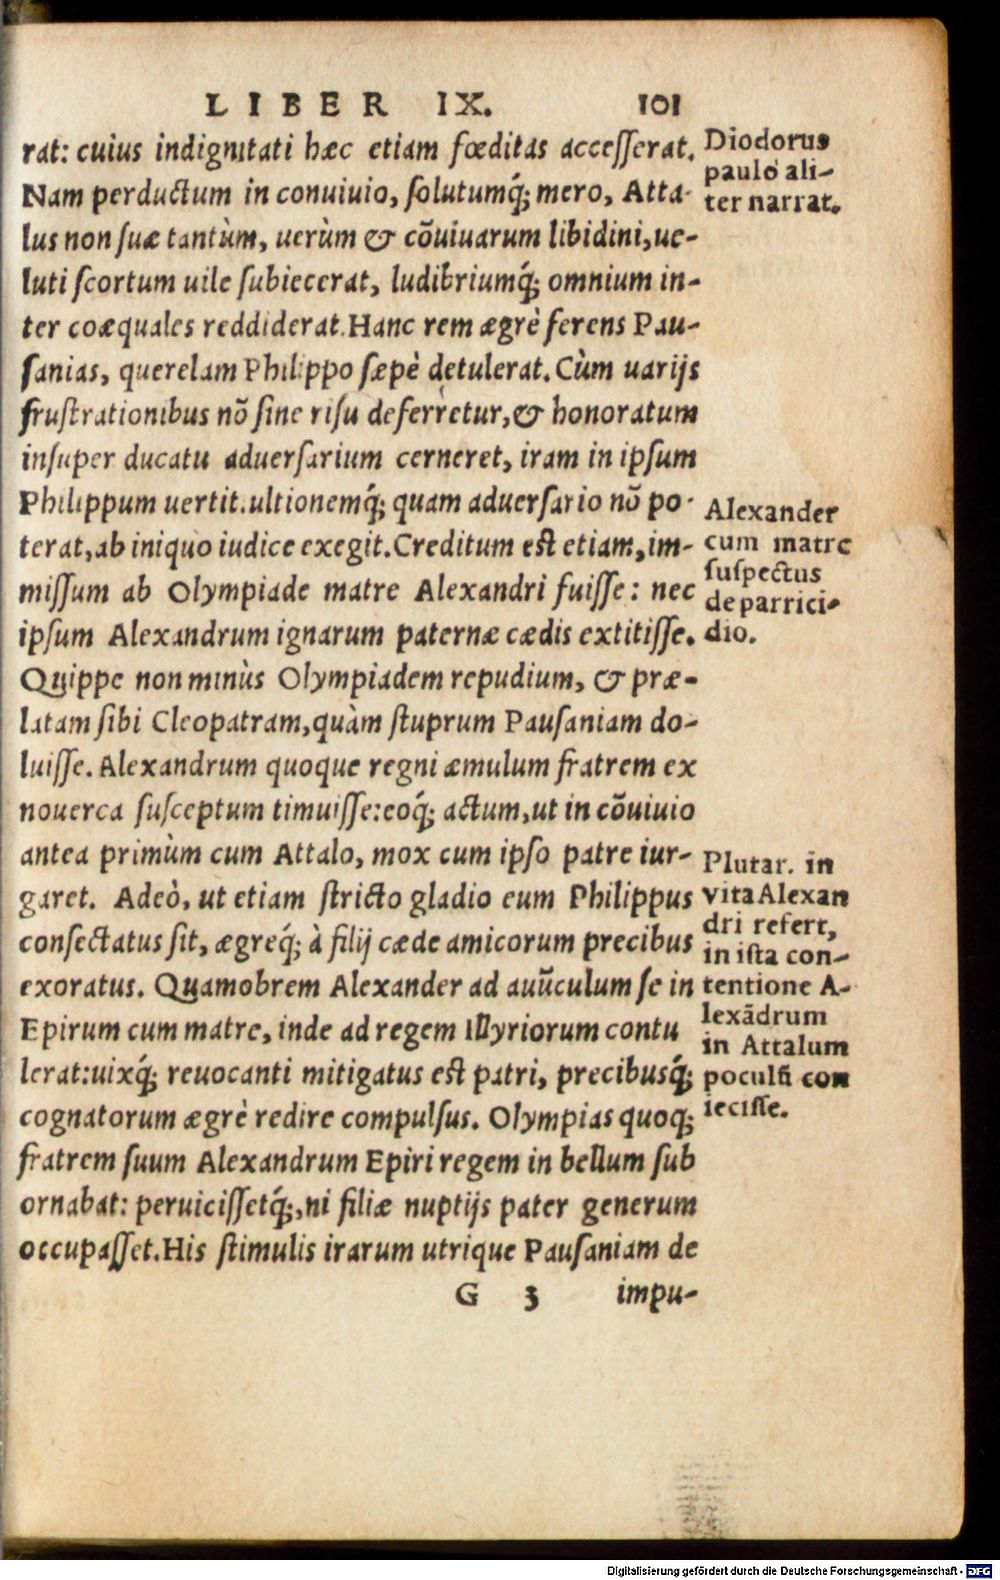 LIBER IX. 101
rat: cuius indignitati hæc etiam fœditas accesserat.
Nam perductum in conuiuio, solutumq́; mero, Atta-
lus non suæ tantùm, uerùm & cõuiuarum libidini, ue-
luti scortum uile subiecerat, ludibriumq́; omnium in-
ter coæquales reddiderat. Hanc rem ægrè ferens Pau-
sanias, querelam Philippo sæpè detulerat. Cùm uarijs
frustrationibus nõ sine risu deferretur, & honoratum
insuper ducatu aduersarium cerneret, iram in ipsum
Philippum uertit. ultionemq́; quam aduersario nõ po-
terat, ab iniquo iudice exegit. Creditum est etiam, im-
missum ab Olympiade matre Alexandri fuisse: nec
ipsum Alexandrum ignarum paternæ cædis extitisse.
Quippe non minùs Olympiadem repudium, & præ-
latam sibi Cleopatram, quàm stuprum Pausaniam do-
luisse. Alexandrum quoque regni æmulum fratrem ex
nouerca susceptum timuisse: eoq́; actum, ut in cõuiuio
antea primùm cum Attalo, mox cum ipso patre iur-
garet. Adeò, ut etiam stricto gladio eum Philippus
consectatus sit, ægreq́; à filij cæde amicorum precibus
exoratus. Quamobrem Alexander ad auũculum se in
Epirum cum matre, inde ad regem Illyriorum contu
lerat: uixq́; reuocanti mitigatus est patri, precibusq́;
cognatorum ægrè redire compulsus. Olympias quoq;
fratrem suum Alexandrum Epiri regem in bellum sub
ornabat: peruicissetq́;, ni filiæ nuptijs pater generum
occupasset. His stimulis irarum utrique Pausaniam de
G 3 impu-
Diodorus
paulò ali-
ter narrat.
Alexander
cum matre
suspectus
de parrici-
dio.
Plutar. in
vita Alexan
dri refert,
in ista con-
tentione A-
lexãdrum
in Attalum
poculũ con
iecisse.
Digitalisierung gefördert durch die Deutsche Forschungsgemeinschaft - DFG